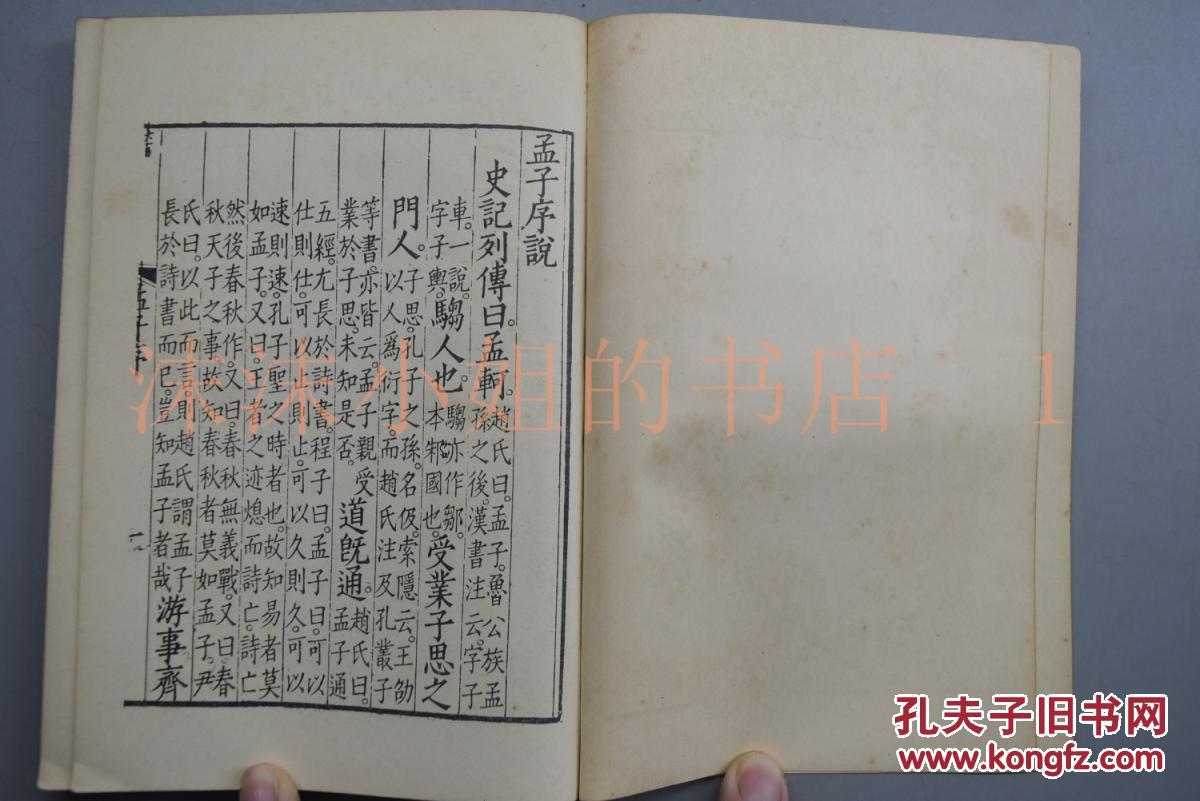 孟子序說
史記列傳曰。孟軻。趙氏曰。孟子。魯公族孟
孫之後。漢書注云。字子
車。一說。
字子輿。騶人也。騶亦作鄒。
本邾國也。受業子思之
門人。子思。孔子之孫。名伋。索隱云。王劭
以人爲衍字。而趙氏注及孔叢子
等書。亦皆云。孟子親受
業於子思。未知是否。道旣通。趙氏曰。
孟子通
五經。尤長於詩書。程子曰。孟子曰。可以
仕則仕。可以止則止。可以久則久。可以
速則速。孔子聖之時者也。故知易者莫
如孟子。又曰。王者之迹熄而詩亡。詩亡
然後春秋作。又曰。春秋無義戰。又曰。春
秋天子之事。故知春秋者莫如孟子。尹
氏曰。以此而言。則趙氏謂孟子
長於詩書而已。豈知孟子者哉游事齊
沫沫小姐的书店 1
孔夫子旧书网
www.kongfz.com